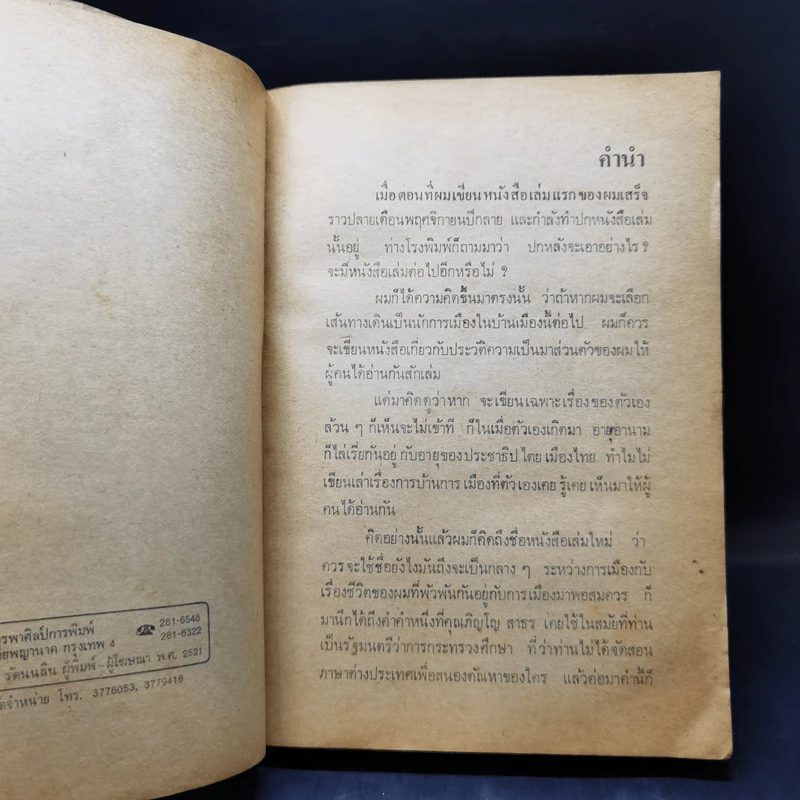 รพาศิลป์การพิมพ์
281-6548
281-6322
ยพญานาค กรุงเทพ 4
รัตนนลิน ผู้พิมพ์-ผู้โฆษณา พ.ศ. 2521
จำหน่าย โทร. 3776053, 3779418
คำนำ
เมื่อตอนที่ผมเขียนหนังสือเล่มแรกของผมเสร็จ
ราวปลายเดือนพฤศจิกายนปีกลาย และกำลังทำปกหนังสือเล่ม
นั้นอยู่ ทางโรงพิมพ์ก็ถามมาว่า ปกหลังจะเอาอย่างไร ?
จะมีหนังสือเล่มต่อไปอีกหรือไม่ ?
ผมก็ได้ความคิดขึ้นมาตรงนั้น ว่าถ้าหากผมจะเลือก
เส้นทางเดินเป็นนักการเมืองในบ้านเมืองนี้ต่อไป ผมก็ควร
จะเขียนหนังสือเกี่ยวกับประวัติความเป็นมาส่วนตัวของผมให้
ผู้คนได้อ่านกันสักเล่ม
แต่มาคิดดูว่าหาก จะเขียนเฉพาะเรื่องของตัวเอง
ล้วน ๆ ก็เห็นจะไม่เข้าที ก็ในเมื่อตัวเองเกิดมา อายุอานาม
ก็ไล่เรี่ยกันอยู่กับอายุของประชาธิปไตยเมืองไทย ทำไมไม่
เขียนเล่าเรื่องการบ้านการเมืองที่ตัวเองเคยรู้เคยเห็นมาให้ผู้
คนได้อ่านกัน
คิดอย่างนั้นแล้วผมก็คิดถึงชื่อหนังสือเล่มใหม่ ว่า
ควรจะใช้ชื่อยังไงมันถึงจะเป็นกลาง ๆ ระหว่างการเมืองกับ
เรื่องชีวิตของผมที่พัวพันกันอยู่กับการเมืองมาพอสมควร ก็
มานึกได้ถึงคำคำหนึ่งที่คุณภิญโญ สาธร เคยใช้ในสมัยที่ท่าน
เป็นรัฐมนตรีว่าการกระทรวงศึกษา ที่ว่าท่านไม่ได้จัดสอน
ภาษาต่างประเทศเพื่อสนองตัณหาของใคร แล้วต่อมาคำนี้ก็